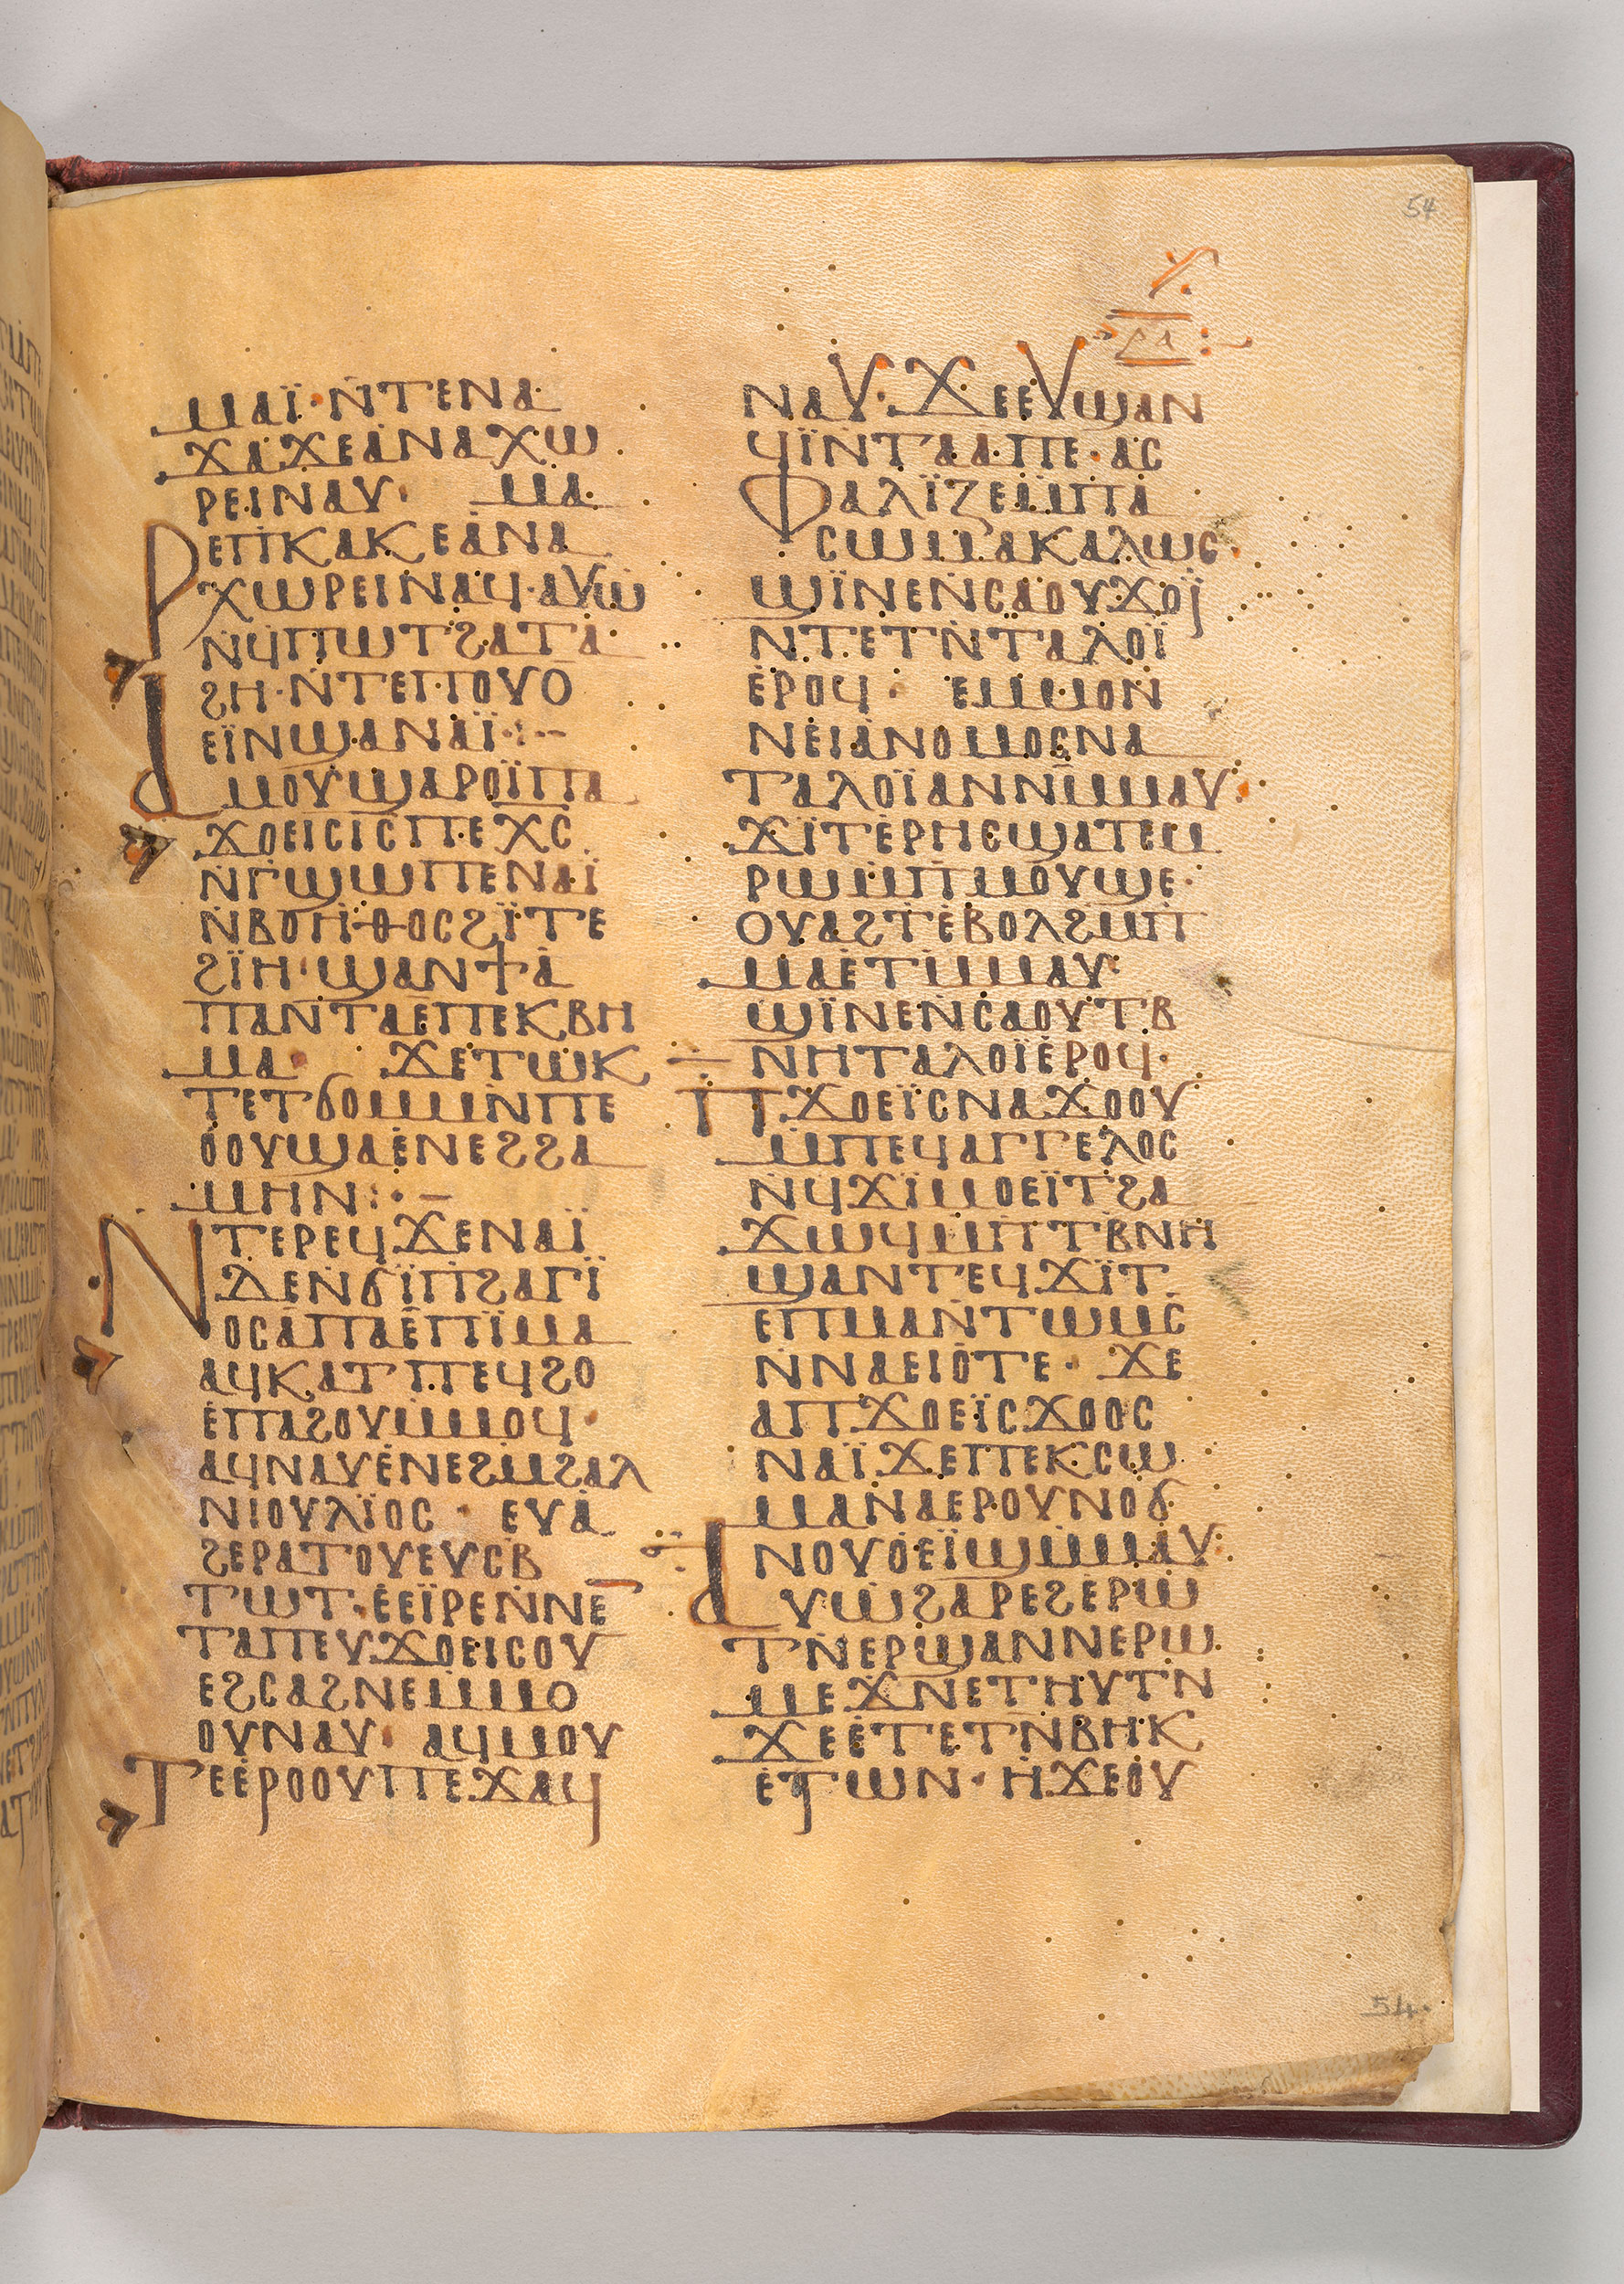 54
ⲣⲁ
ⲙⲁⲓ̈·ⲛ̇ⲧⲉⲛⲁ
ϫⲁϫⲉⲁⲛⲁⲭⲱ
ⲣⲉⲓⲛⲁⲩ· ⲙⲁ
ⲣⲉⲡⲕⲁⲕⲉⲁⲛⲁ
ⲭⲱⲣⲉⲓⲛⲁϥ·ⲁⲩⲱ
ⲛϥⲡⲱⲧϩⲁⲧⲁ
ϩⲏ·ⲛ̇ⲧⲉⲡⲟⲩⲟ
ⲉⲓ̈ⲛϣⲁⲛⲁⲓ̈:·–
ⲁⲙⲟⲩϣⲁⲣⲟⲓ̈ⲡⲁ
ϫⲟⲉⲓⲥⲓ̅ⲥ̅ⲡⲉⲭ̅ⲥ̅
ⲛ̇ⲅϣⲱⲡⲉⲛⲁⲓ̈
ⲛ̇ⲃⲟⲏⲑⲟⲥϩⲓ̈ⲧⲉ
ϩⲓ̈ⲏ·ϣⲁⲛϯⲁ̇
ⲡⲁⲛⲧⲁⲉ̇ⲡⲉⲕⲃⲏ
ⲙⲁ· ϫⲉⲧⲱⲕ
ⲧⲉⲧϭⲟⲙⲙⲛ̇ⲡⲉ
ⲟ̇ⲟⲩϣⲁⲉ̇ⲛⲉϩϩⲁ
ⲙⲏⲛ:·–
ⲛⲧⲉⲣⲉϥϫⲉⲛⲁⲓ̈
ⲇⲉⲛ̇ϭⲓ̈ⲡϩⲁⲅⲓ̈
ⲟⲥⲁⲡⲁⲉ̇ⲡⲓ̈ⲙⲁ
ⲁϥⲕⲁⲧⲡⲉϥϩⲟ
ⲉ̇ⲡⲁϩⲟⲩⲙ̇ⲙⲟϥ·
ⲁϥⲛⲁⲩⲉ̇ⲛⲉϩⲙ̇ϩⲁⲗ
ⲛⲓⲟⲩⲗⲓ̈ⲟⲥ· ⲉⲩⲁ̇
ϩⲉⲣⲁⲧⲟⲩⲉⲩⲥⲃ
ⲧⲱⲧ·ⲉ̇ⲉⲓ̈ⲣⲉⲛ̇ⲛⲉ
ⲧⲁⲡⲉⲩϫⲟⲉⲓⲥⲟⲩ
ⲉϩⲥⲁϩⲛⲉⲙ̇ⲙⲟ
ⲟⲩⲛⲁⲩ· ⲁϥⲙⲟⲩ
ⲧⲉⲉ̇ⲣⲟⲟⲩⲡⲉϫⲁϥ
ⲛⲁⲩ·ϫⲉⲉⲩϣⲁⲛ
ϥⲓ̈ⲛ̇ⲧⲁⲁⲡⲉ·ⲁⲥ
ⲫⲁⲗⲓ̈ⲍⲉⲙ̇ⲡⲁ
ⲥⲱⲙⲁⲕⲁⲗⲱⲥ·
ϣⲓ̈ⲛⲉⲛ̇ⲥⲁⲟⲩϫⲟⲓ̈
ⲛ̇ⲧⲉⲧⲛ̇ⲧⲁⲗⲟⲓ̈
ⲉ̇ⲣⲟϥ· ⲉⲙ̇ⲙⲟⲛ
ⲛⲉⲓⲁ̇ⲛⲟⲙⲟⲥⲛⲁ
ⲧⲁⲗⲟⲓ̈ⲁⲛⲛⲙ̇ⲙⲁⲩ·
ϫⲓ̈ⲧⲉ̇ⲣⲏⲥϣⲁⲧⲉⲙ
ⲣⲱⲙ̇ⲡⲙⲟⲩϣⲉ·
ⲟⲩⲁϩⲧⲉ̇ⲃⲟⲗϩⲙ̇ⲡ
ⲙⲁⲉ̇ⲧⲙ̇ⲙⲁⲩ·
ϣⲓ̈ⲛⲉⲛ̇ⲥⲁⲟⲩⲧⲃ
ⲛⲏⲧⲁⲗⲟⲓ̈ⲉ̇ⲣⲟϥ·
ⲡϫⲟⲉⲓ̈ⲥⲛⲁϫⲟⲟⲩ
ⲙ̇ⲡⲉϥⲁⲅⲅⲉⲗⲟⲥ
ⲛϥϫⲓ̈ⲙⲟⲉⲓ̈ⲧϩⲁ
ϫⲱϥⲙ̇ⲡⲧⲃ̇ⲛⲏ
ϣⲁⲛⲧⲉϥϫⲓ̈ⲧ
ⲉⲡⲙⲁⲛ̇ⲧⲱⲙⲥ
ⲛ̇ⲛⲁⲉⲓⲟ̇ⲧⲉ· ϫⲉ
ⲁⲡϫⲟⲉⲓ̈ⲥϫⲟⲟⲥ
ⲛⲁⲓ̈ϫⲉⲡⲉⲕⲥⲱ
ⲙⲁⲛⲁⲉⲣⲟⲩⲛⲟϭ
ⲛⲟⲩⲟ̇ⲉⲓ̈ϣⲙ̇ⲙⲁⲩ:
ⲁⲩⲱϩⲁⲣⲉϩⲉ̇ⲣⲱ
ⲧⲛ̇ⲉⲣϣⲁⲛⲛⲉⲣⲱ
ⲙⲉϫⲛⲉⲧⲏⲩⲧⲛ̇
ϫⲉⲉ̇ⲧⲉⲧⲛ̇ⲃⲏⲕ
ⲉ̇ⲧⲱⲛ·ⲏ̇ϫⲉⲟⲩ
54·